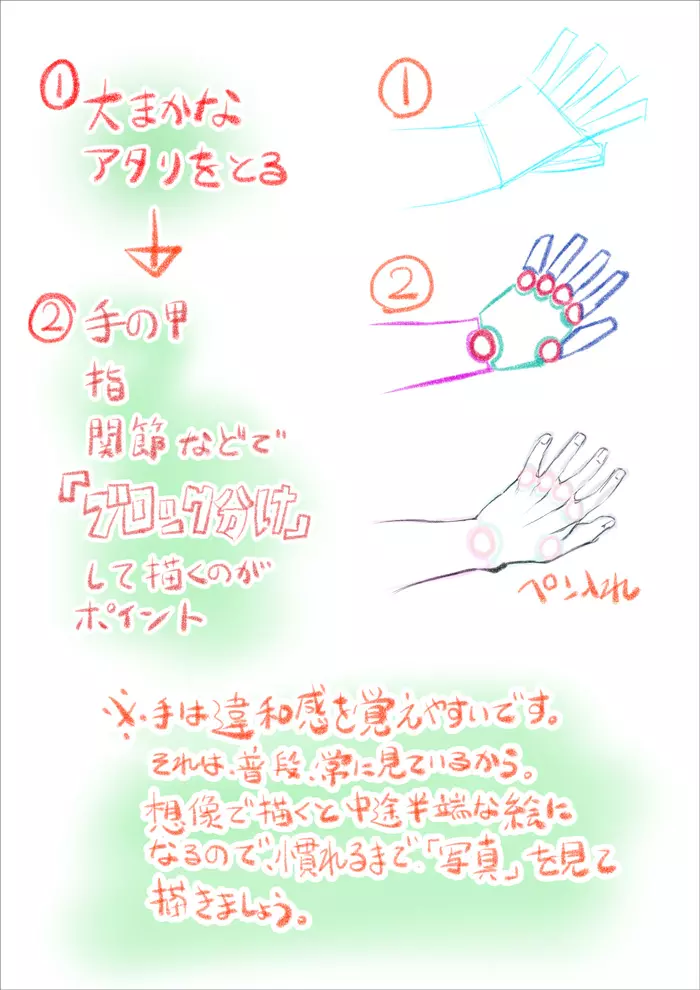 ① 大まかな
アタリをとる
② 手の甲
指
関節などで
『ブロック分け』
して描くのが
ポイント
①
②
ペン入れ
※手は違和感を覚えやすいです。
それは、普段、常に見ているから。
想像で描くと中途半端な絵に
なるので、慣れるまで、「写真」を見て
描きましょう。